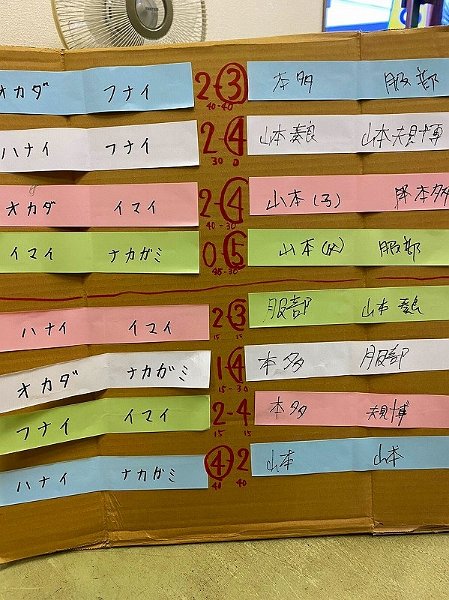 オカダ フナイ 2-③ 本多 服部
40-40
ハナイ フナイ 2-④ 山本 山本
30 0
オカダ イマイ 2-④ 山本(ろ) 本多
40-30
イマイ ナカガミ 0 ⑤ 山本 服部
45-30
ハナイ イマイ 2-③ 服部 山本
15 15
オカダ ナカガミ 1-④ 本多 服部
15-30
フナイ イマイ 2-4 本多 規博
15 15
ハナイ ナカガミ ④-2 山本 山本
40 40